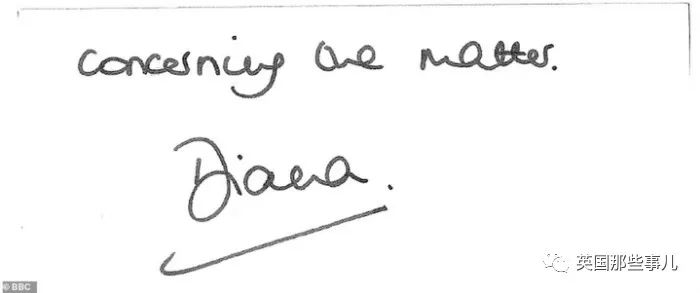 concerning the matter.
Diana.
©BBC
英国那些事儿